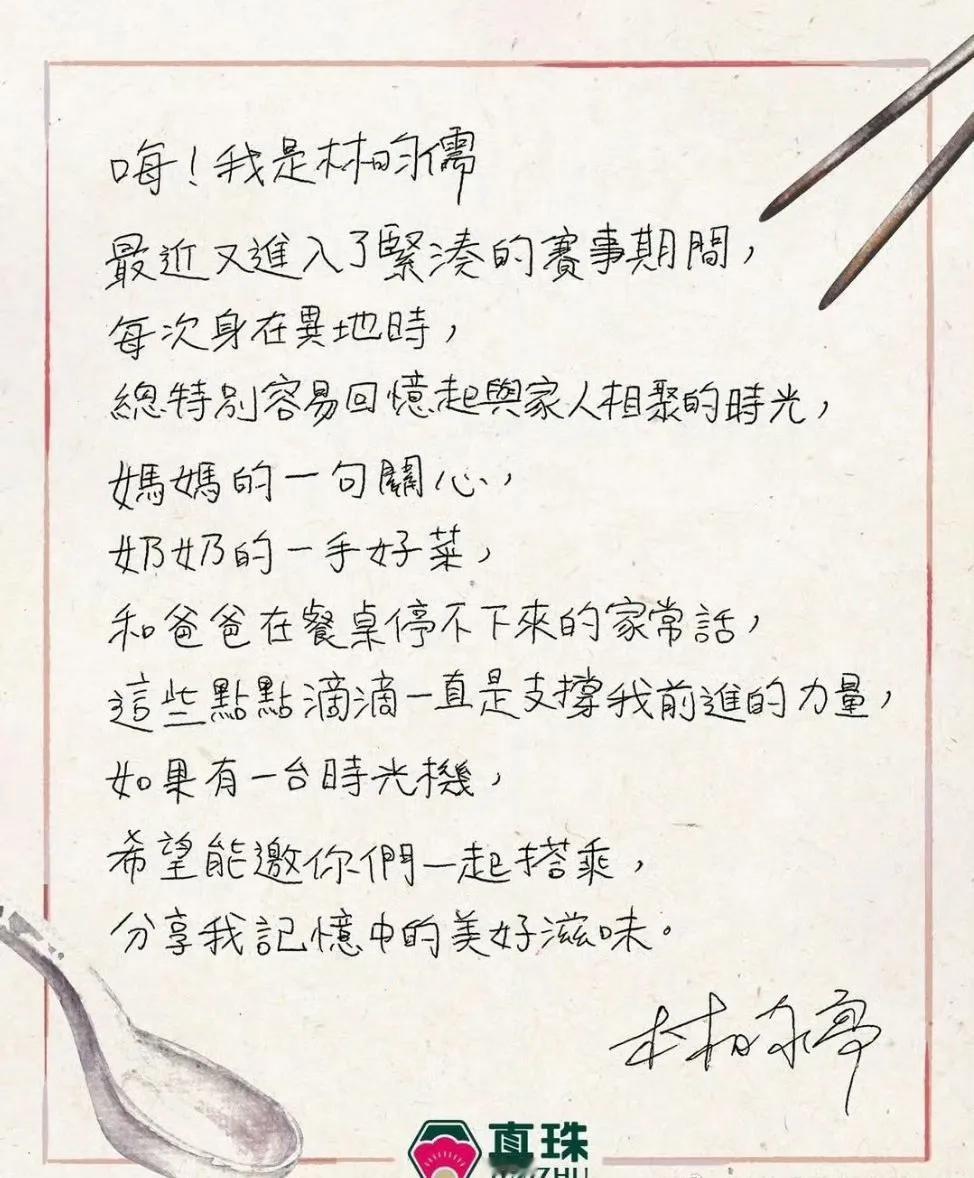 嗨！我是林昀儒
最近又進入了緊湊的賽事期間，
每次身在異地時，
總特別容易回憶起與家人相聚的時光，
媽媽的一句關心，
奶奶的一手好菜，
和爸爸在餐桌停不下來的家常話，
這些點點滴滴一直是支撐我前進的力量，
如果有一台時光機，
希望能邀你們一起搭乘，
分享我記憶中的美好滋味。
林昀儒
真珠